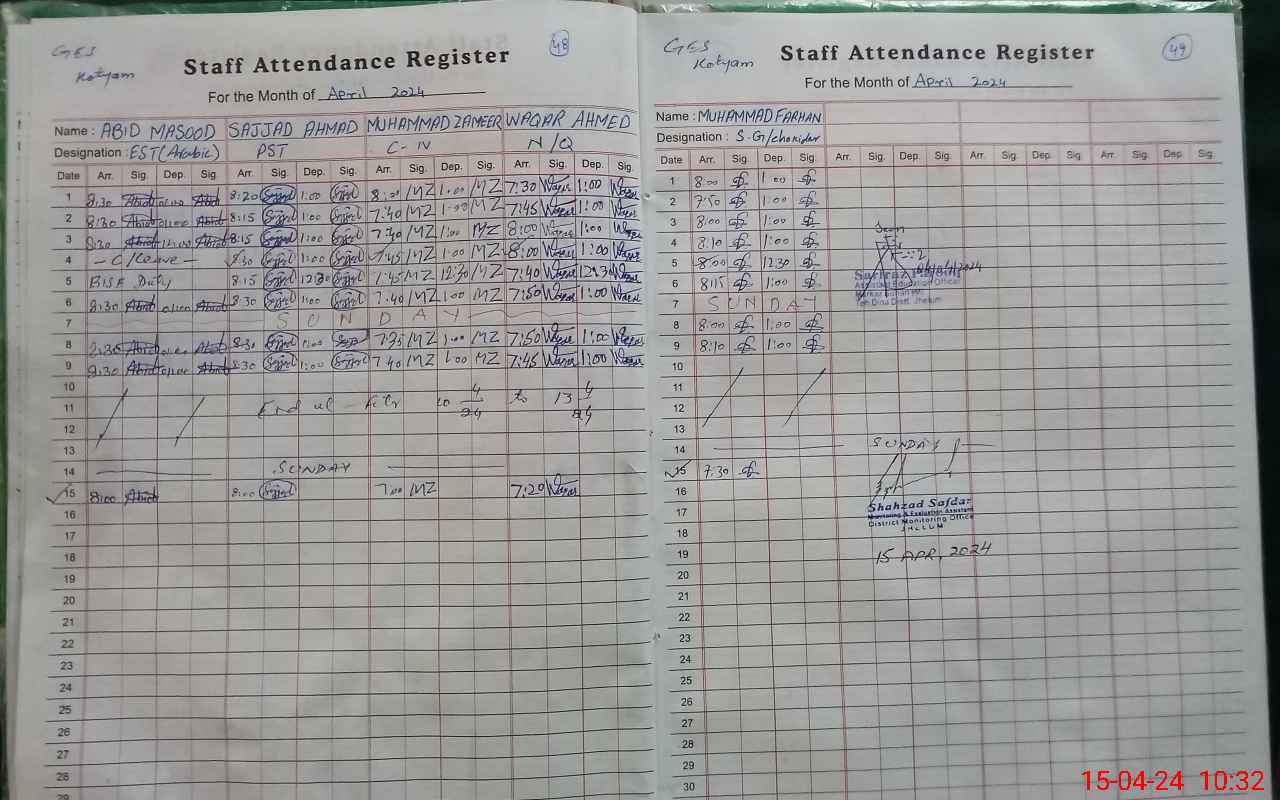 GES
Kotyam
48
Staff Attendance Register
For the Month of April 2024
Name : ABID MASOOD SAJJAD AHMAD MUHAMMAD ZAMEER WAQAR AHMED
Designation : EST(Arabic) PST C-IV N/Q
Date Arr. Sig. Dep. Sig. Arr. Sig. Dep. Sig. Arr. Sig. Dep. Sig. Arr. Sig. Dep. Sig.
1 8:30 Abid 01:00 Abid 8:20 Sajjad 1:00 Sajjad 8:00 MZ 1:00 MZ 7:30 Waqar 1:00 Waqar
2 8:30 Abid 01:00 Abid 8:15 Sajjad 1:00 Sajjad 7:40 MZ 1:00 MZ 7:45 Waqar 1:00 Waqar
3 8:30 Abid 01:00 Abid 8:15 Sajjad 1:00 Sajjad 7:40 MZ 1:00 MZ 8:00 Waqar 1:00 Waqar
4 - C/Leave - 8:30 Sajjad 1:00 Sajjad 7:45 MZ 1:00 MZ 8:00 Waqar 1:00 Waqar
5 BISE Duty 8:15 Sajjad 12:30 Sajjad 7:45 MZ 12:30 MZ 7:40 Waqar 12:30 Waqar
6 8:30 Abid 01:00 Abid 8:30 Sajjad 1:00 Sajjad 7:40 MZ 1:00 MZ 7:50 Waqar 1:00 Waqar
7 SUNDAY
8 8:30 Abid 01:00 Abid 8:30 Sajjad 1:00 Sajjad 7:35 MZ 1:00 MZ 7:50 Waqar 1:00 Waqar
9 8:30 Abid 01:00 Abid 8:30 Sajjad 1:00 Sajjad 7:40 MZ 1:00 MZ 7:45 Waqar 1:00 Waqar
10
11 Eid ul - Fitr 10 4/24 to 13 4/24
12
13
14 SUNDAY
15 8:00 Abid 8:00 Sajjad 7:00 MZ 7:20 Waqar
16
17
18
19
20
21
22
23
24
25
26
27
28
29
GES
Kotyam
49
Staff Attendance Register
For the Month of April 2024
Name : MUHAMMAD FARHAN
Designation : S.G/chokidar
Date Arr. Sig. Dep. Sig. Arr. Sig. Dep. Sig. Arr. Sig. Dep. Sig. Arr. Sig. Dep. Sig.
1 8:00 1:00
2 7:50 1:00
3 8:00 1:00
4 8:10 1:00
5 8:00 12:30
6 8:15 1:00
Seen
Assistant Education Officer
7 SUNDAY
8 8:00 1:00
9 8:10 1:00
10
11
12
13
14 SUNDAY
15 7:30
16
17
Shahzad Safdar
Monitoring & Evaluation Assistant
District Monitoring Office
JHELUM
18
19
15 APR, 2024
20
21
22
23
24
25
26
27
28
29
30
15-04-24 10:32